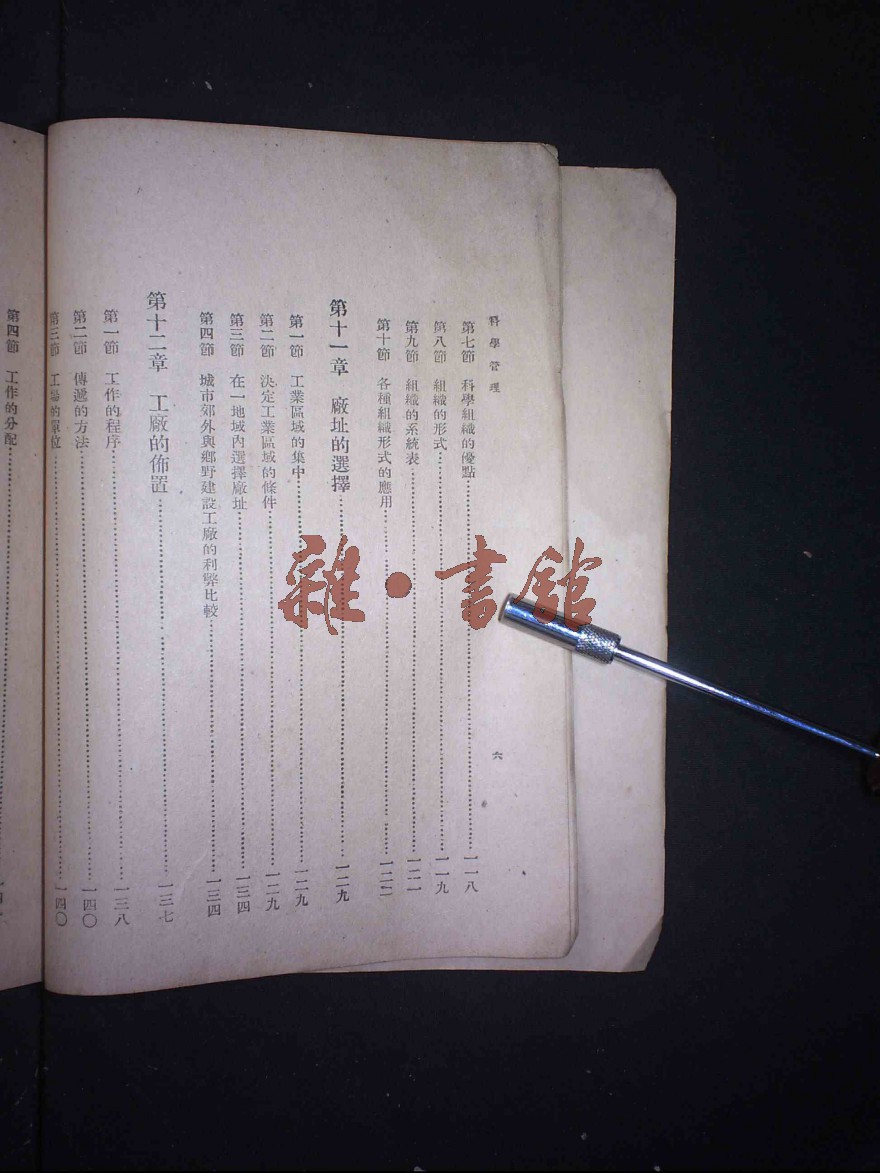 科學管理
六
第七節 科學組織的優點 一一八
第八節 組織的形式 一一九
第九節 組織的系統表 一二一
第十節 各種組織形式的應用 一二二
第十一章 廠址的選擇 一二九
第一節 工業區域的集中 一二九
第二節 決定工業區域的條件 一二九
第三節 在一地域內選擇廠址 一三四
第四節 城市郊外與鄉野建設工廠的利弊比較 一三四
第十二章 工廠的佈置 一三七
第一節 工作的程序 一三八
第二節 傳遞的方法 一四〇
第三節 工場的單位 一四〇
第四節 工作的分配
雜·書館